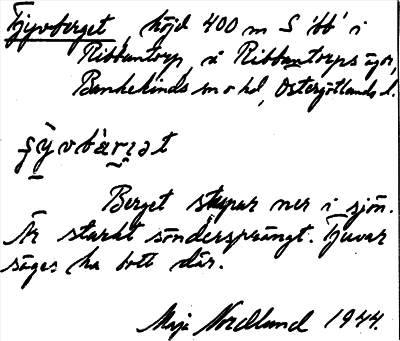 Tjyvberget, höjd 400 m S 'bb' i
Ribbantorp, å Ribbantorps ägor,
Bankekinds sn o hd, Östergötlands l.
ʃy̠vbàrɪət
Berget stupar ner i sjön.
Är starkt söndersprängt. Tjuvar
säges ha bott där.
Maja Nordlund 1944.